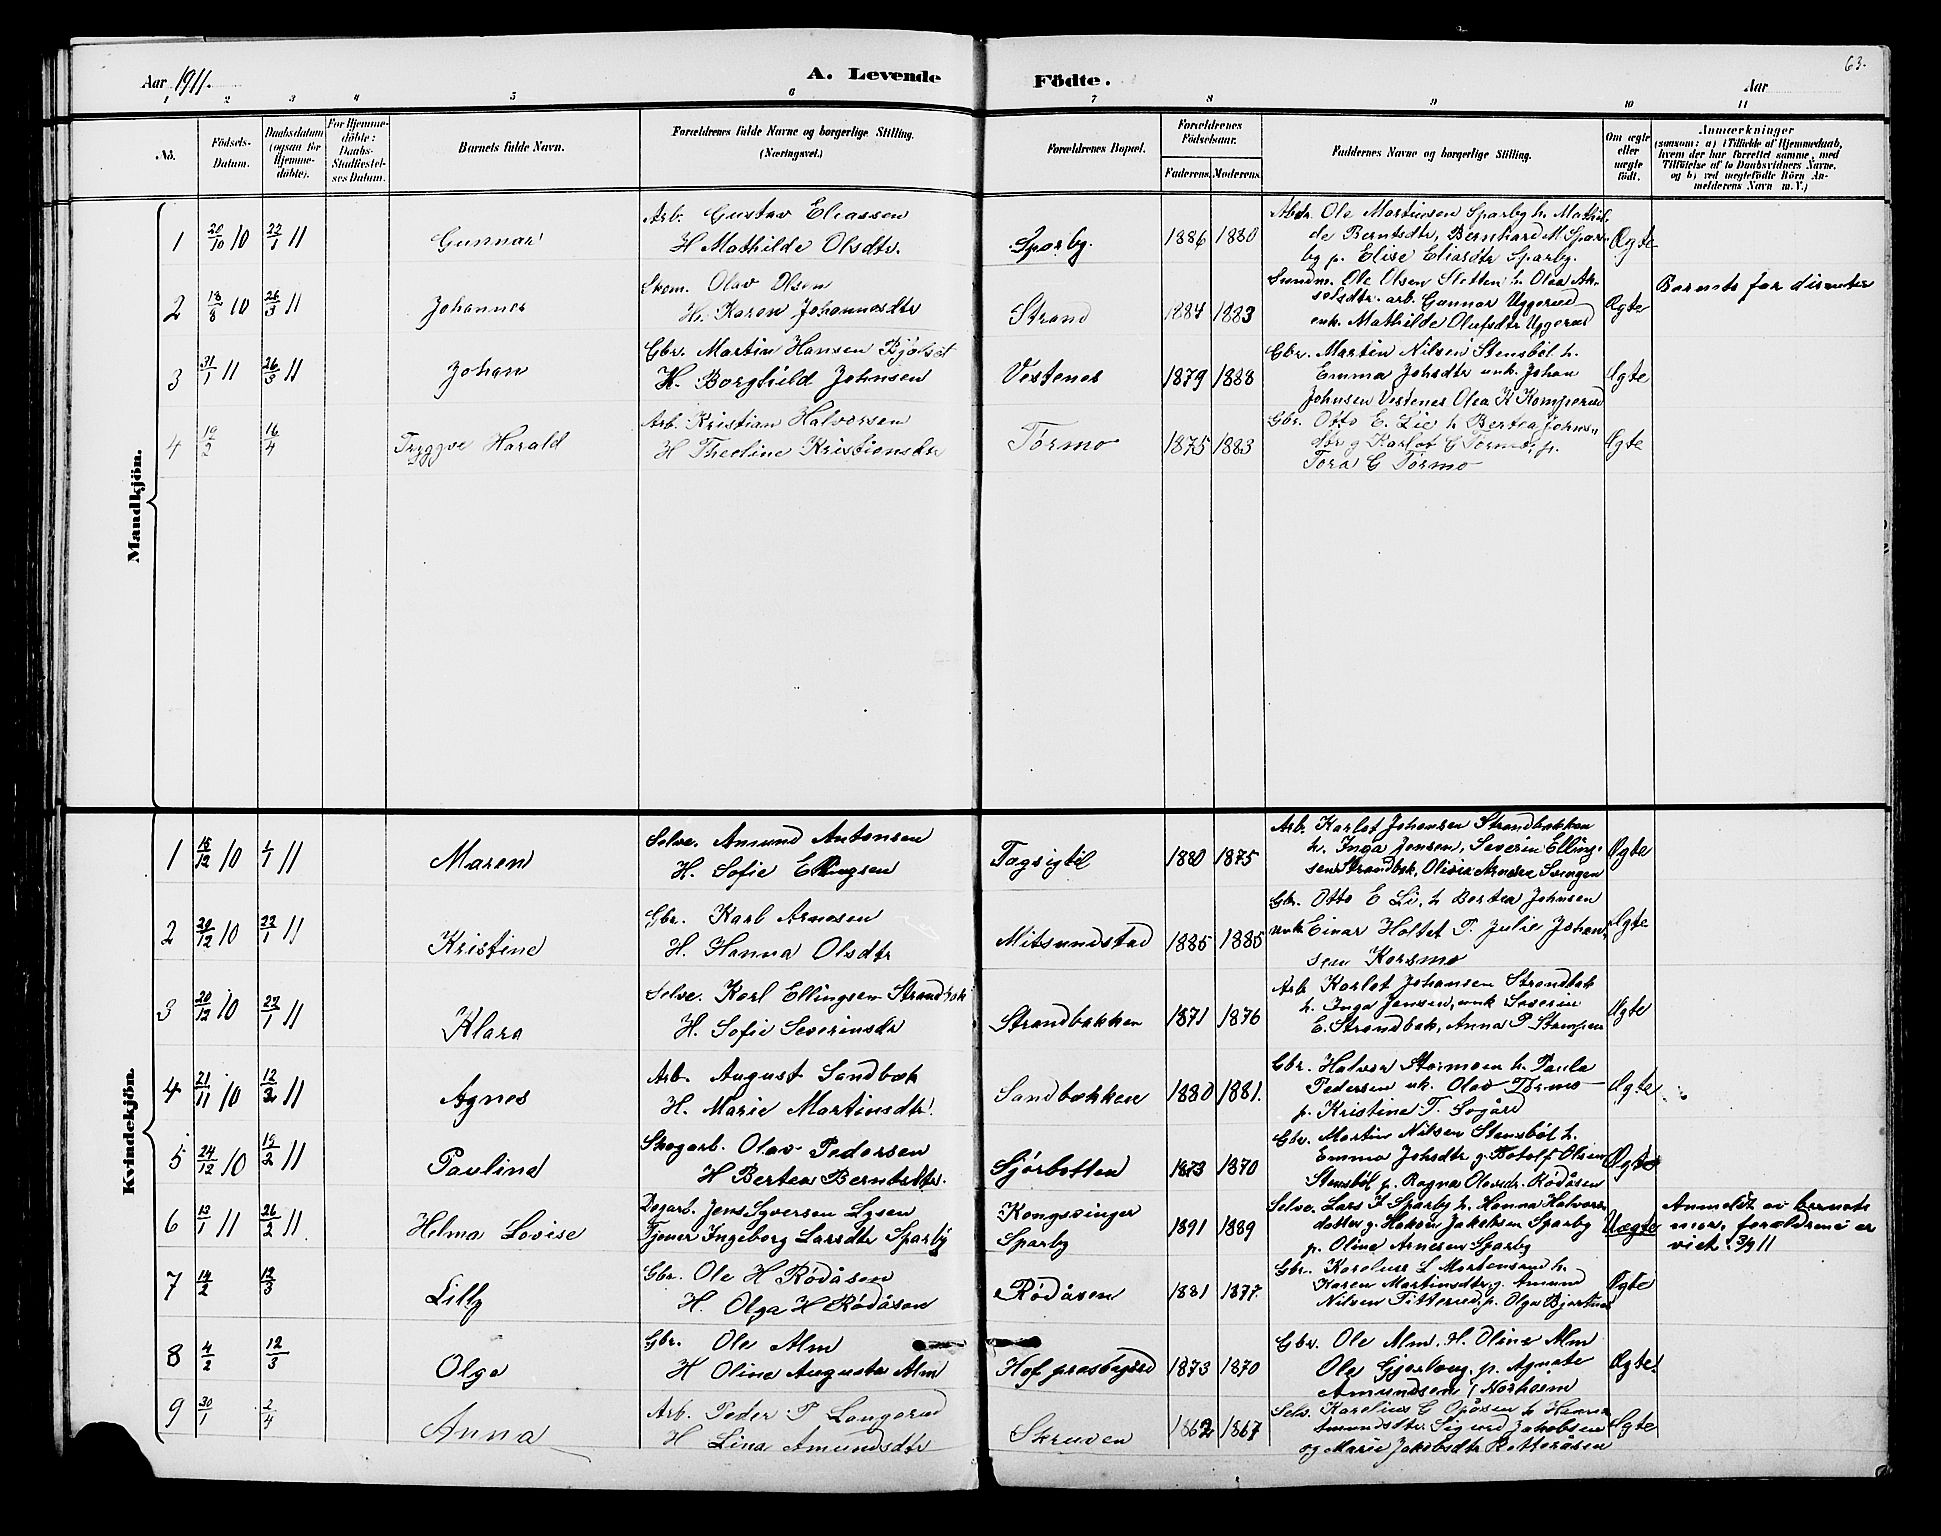 63.
Aar 1911.
A. Levende Födte.
Aar
1 2 3 4 5 6 7 8 9 10 11
No.
Födsels-Datum.
Daabsdatum (ogsaa for Hjemmedöbte).
For Hjemmedöbte: Daabs-Stadfæstelses Datum.
Barnets fulde Navn.
Forældrenes fulde Navne og borgerlige Stilling.
(Næringsvei.)
Forældrenes Bopæl.
Forældrenes Födselsaar.
Faderens. Moderens.
Faddernes Navne og borgerlige Stilling.
Om ægte eller uægte födt.
Anmærkninger
(saasom: a) i Tilfælde af Hjemmedaab,
hvem der har forrettet samme, med
Tilföielse af to Daabsvidners Navne,
og b) ved uægtefödte Börn An-
melderens Navn m. V.)
Mandkjön.
1 20/10 10 22/1 11 Gunnar
Arb. Gustav Eliassen
H Mathilde Olsdtr.
Sparby. 1886 1880
Ole Martinsen Sparby h. Mathil-
de Berntsdtr, Bernhard M Spar-
by p. Elise Eliasdtr Sparby.
Ægte
2 18/8 10 26/3 11 Johannes
Skom. Olav Olsen
H. Karen Johannesdtr
Strand 1884 1883
Ole Olsen Sletten h. Olea Ak-
selsdtr. arb. Gunnar Uggerud
enk. Mathilde Olufsdtr Uggerud
Ægte
Barnets far dissenter
3 31/1 11 26/3 11 Johan
Gbr. Martin Hansen
H. Borghild Johnsen
Vestenes 1879 1888
Gbr. Martin Nilsen Stensböl h.
Emma Johsdtr unk. Johan
Johnsen Vestenes Olea K Komperud
Ægte
4 19/2 16/4 Tryggve Harald
Arb. Kristian Halvorsen
H Theoline Kristiansdtr
Tørmo 1875 1883
Gbr. Otto E. Lie h Bertea Johnsn
dtr g Karlot G Tørmo, p.
Tora G Tørmo
Ægte
Kvindekjön.
1 18/12 10 1/1 11 Maren
Selve. Amund Antonsen
H. Sofie Ellingsen
Tagsigtil 1880 1875
Arb. Karlot Johansen Strandbakken
h. Inga Jensen, Severin Elling-
sen Strandbak, Olivia Arnesen Svingen
Ægte
2 20/12 10 22/1 11 Kristine
Gbr. Karl Arnesen
H. Hanna Olsdtr
Mitsundstad 1885 1885
Gbr. Otto E Li, h Bertea Johnsen
unk Einar Holtet P. Julie Johan-
sen Korsmo
Ægte
3 20/12 10 22/1 11 Klara
Selve. Karl Ellingsen Strandbak
H. Sofie Severinsdr
Strandbakken 1871 1876
Arb Karlot Johansen Strandbak
h. Inga Jensen, unk Severin
E. Strandbak, Anna P
Ægte
4 21/11 10 12/2 11 Agnes
Arb. August Sandbæk
H. Marie Martinsdtr.
Sandbækken 1880 1881.
Gbr. Halvor Stormoen h. Paula
Pedersen uk. Olav Tørmo
p. Kristine T. Sogård
Ægte
5 24/12 10 19/2 11 Paulina
Skogarb. Olav Pedersen
H Bertea Berntsdtr.
Sjørbotten 1873 1870
Gbr. Martin Nilsen Stensböl h.
Emma Johsdtr g. Botolf Olsen
Stensböl p. Ragna Olavsdr. Rödåsen
Ægte
6 13/1 11 26/2 11 Helma Lovise
Dagarb. Jens Syversen Lysen
Tjener Ingeborg Larsdtr Sparby
Kongsvinger
Sparby
1891 1889
Selve. Lars J Sparby h. Hanna Halvors
datter g. Hakon Jakobsen Sparby
p. Oline Arnesen Sparby
Uægte
Anmeldt av barnets
mor, forældrene er
viet 3/9 11
7 14/2 12/3 Lilly
Gbr. Ole H Rødåsen
H. Olga H Rødåsen
Rødåsen 1881 1877.
Gbr. Karelius L Mortensen h.
Karen Martinsdtr g. Amund
Nilsen Titterud. p. Olga Bjortnes
Ægte
8 4/2 12/3 Olga
Gbr. Ole Alm
H Oline Augusta Alm
Hof præstegård 1873 1870
Gbr. Ole Alm. H. Oline Alm
Ole Gjerlaug, p. Agnate
Amundsen
Ægte.
9 30/1 2/4 Anna
Arb. Peder P Langerud
H Lina Amundsdtr
Skruven 1862 1867
Selv. Karelius G Opåsen h Hanna
Amundsdtr. Sigurd Jakobsen
og Marie Jakobsdtr Rotteråsen
Ægte